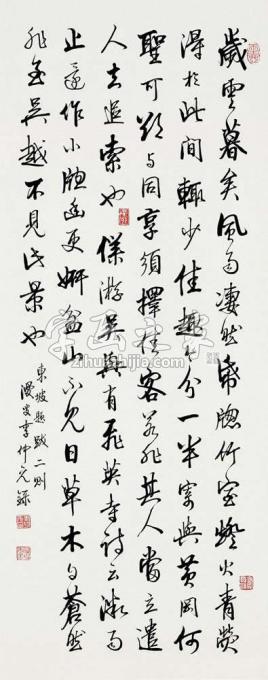 歲雲暮矣風雨凄然帋牕竹室燈火青熒
得於此間輒少佳趣今分一半寄與黃岡何
聖可欲与同享須擇佳客若非其人當立遣
人去追索也 僕游吳興有飛英寺詩云微雨
止還作小牕幽更妍盆山不見日草木自蒼然
非至吳越不見此景也
東坡題跋二則
仲元錄
字画之家
zihuashijie.com